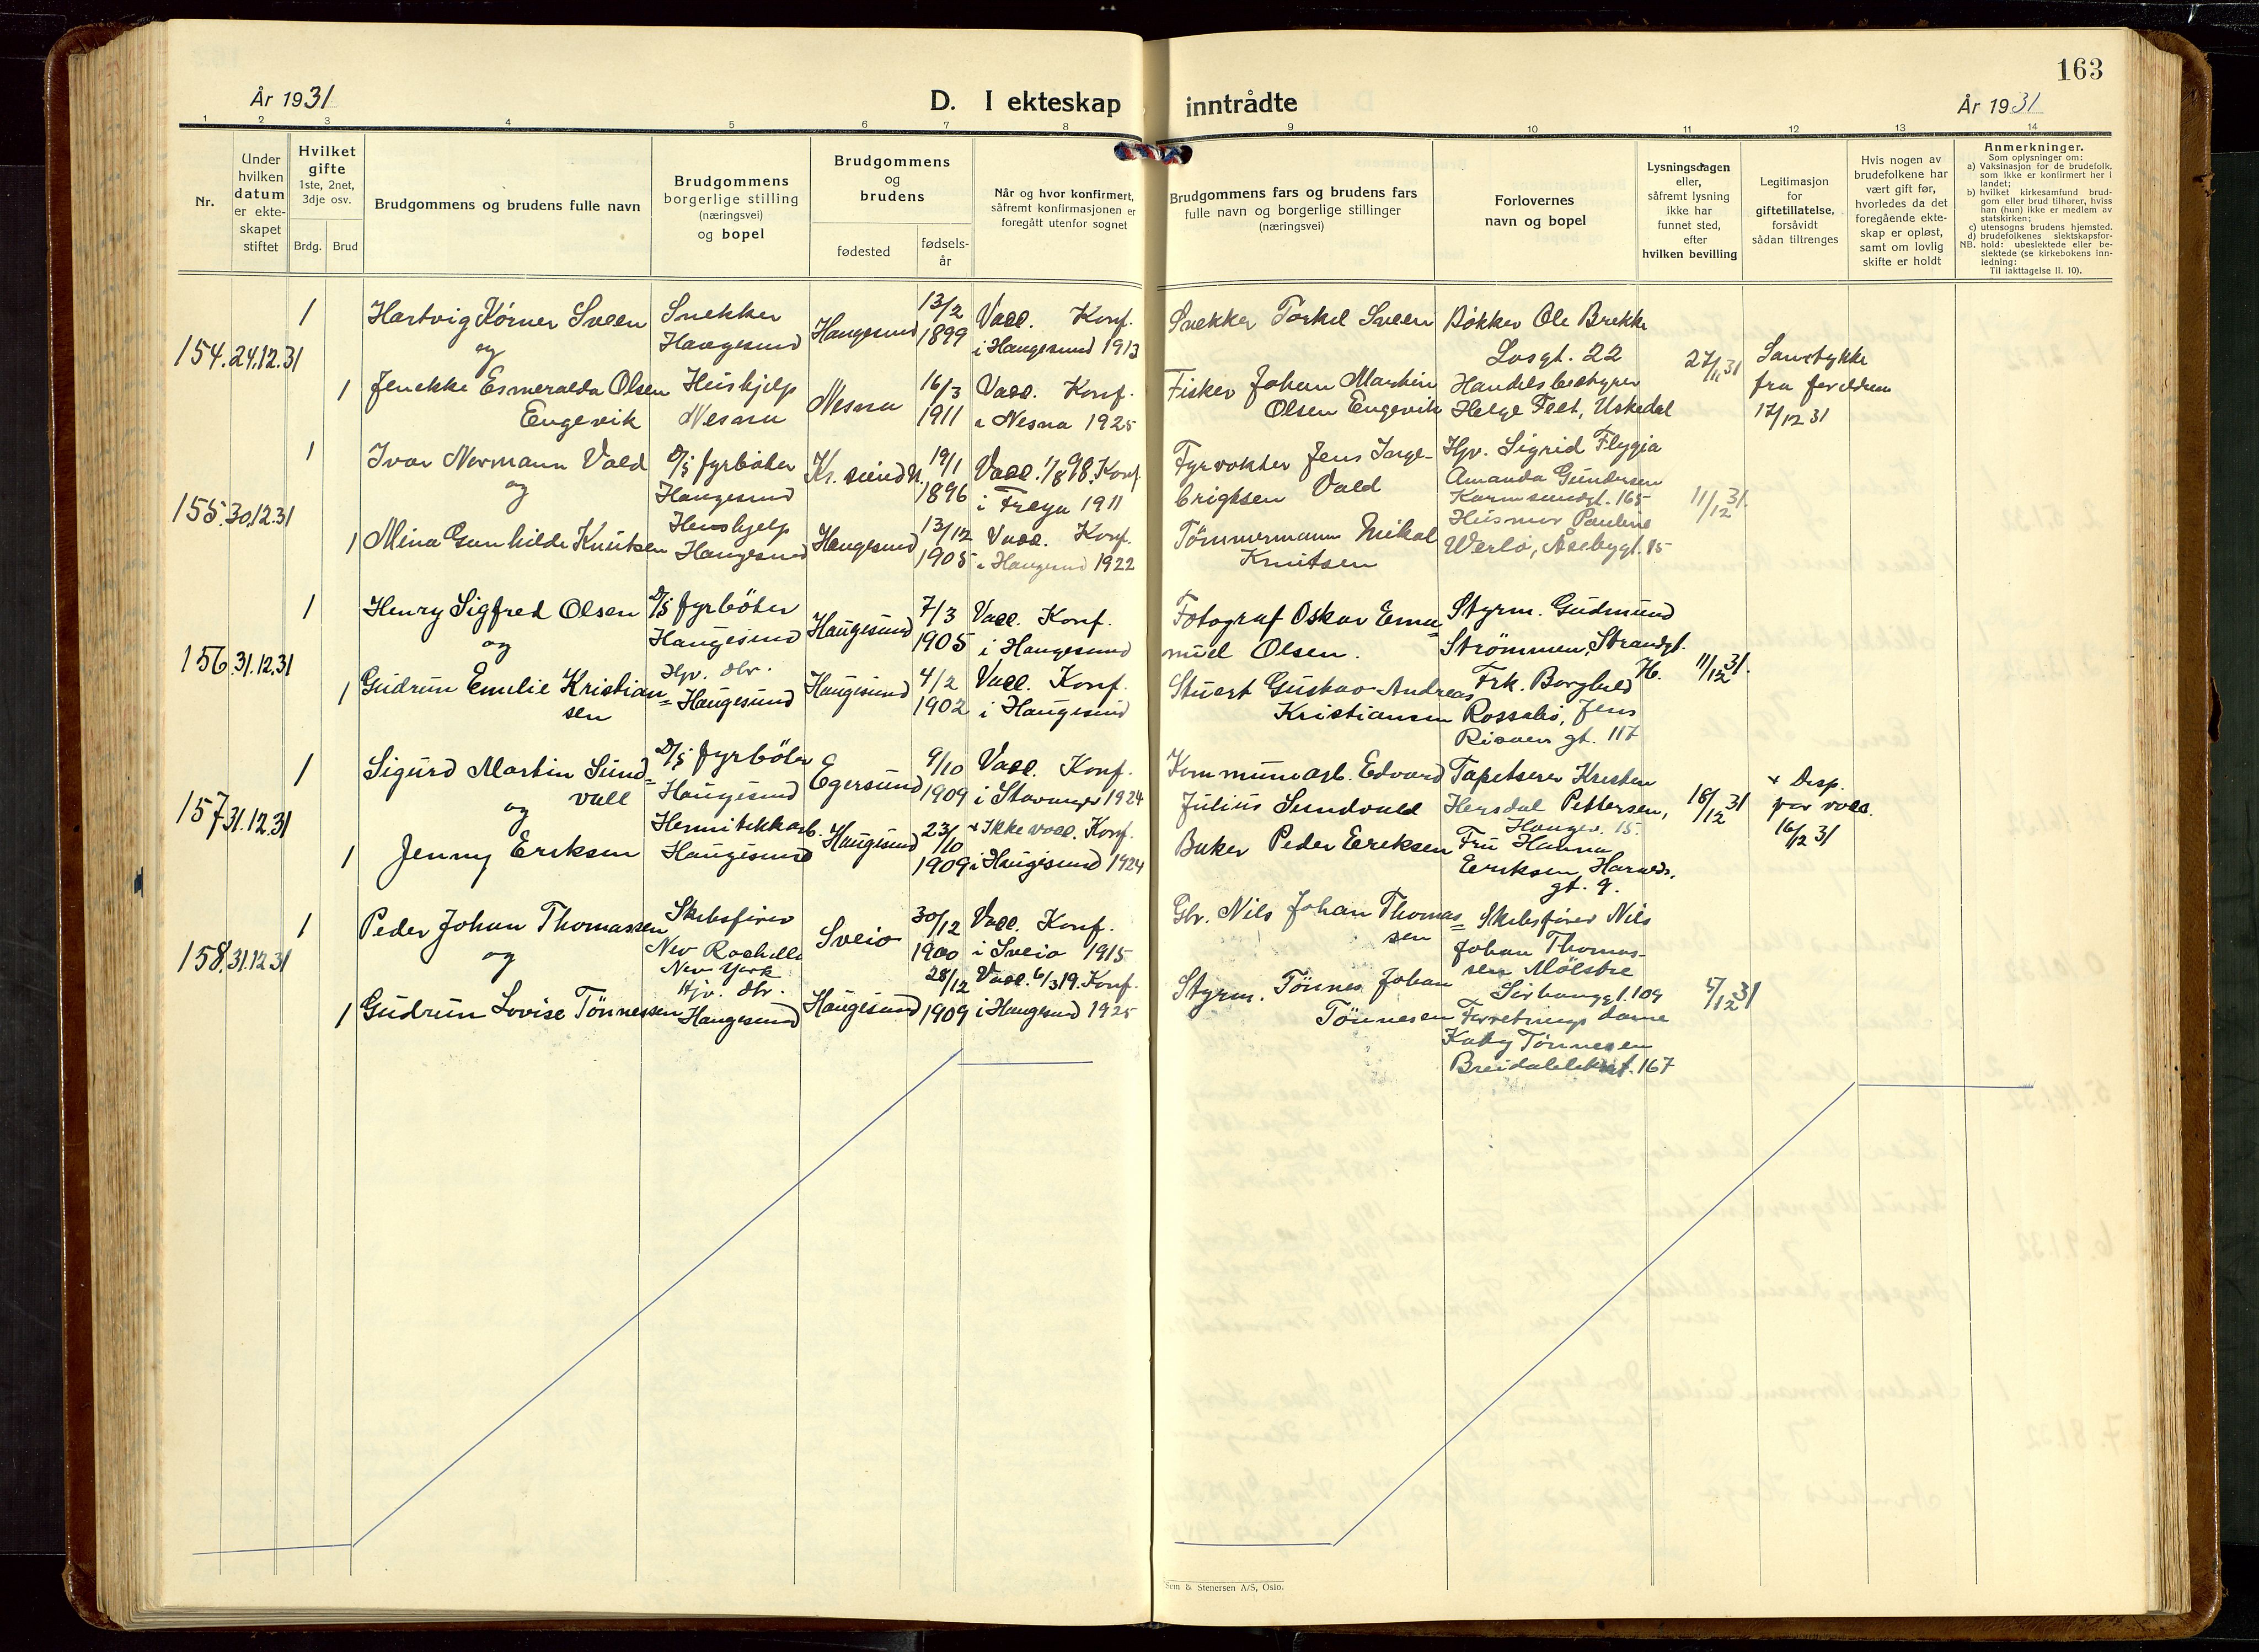 År 1931
D. I ekteskap inntrådte
År 1931
163
1 2 3 4 5 6 7 8 9 10 11 12 13 14
Nr.
Under hvilken datum er ekte-skapet stiftet
Hvilket gifte 1ste, 2net, 3dje osv.
Brdg. Brud
Brudgommens og brudens fulle navn
Brudgommens borgerlige stilling (næringsvei) og bopel
Brudgommens og brudens
fødested
fødsels-år
Når og hvor konfirmert, såfremt konfirmasjonen er foregått utenfor sognet
Brudgommens fars og brudens fars fulle navn og borgerlige stillinger (næringsvei)
Forlovernes navn og bopel
Lysningsdagen eller, såfremt lysning ikke har funnet sted, efter hvilken bevilling
Legitimasjon for giftetillatelse, forsåvidt sådan tiltrenges
Hvis nogen av brudefolkene har vært gift før, hvorledes da det foregående ekte-skap er opløst, samt om lovlig skifte er holdt
Anmerkninger.
Som oplysninger om:
a) Vaksinasjon for de brudefolk, som ikke er konfirmert her i landet;
b) hvilket kirkesamfund brud-gom eller brud tilhører, hviss han (hun) ikke er medlem av statskirken;
c) utensogns brudens hjemsted.
d) brudefolkenes slektskapsfor-
NB. hold: ubeslektede eller be-slektede (se kirkebokens inn-ledning:
Til iakttagelse II. 10).
154. 24.12.31
1 Hartvig Körner Sveen
Snekker
Haugesund
Haugesund
13/2 1899
Vacc. Konf.
i Haugesund 1913
Snekker Torkel Sveen
Bøkker Ole Brekke
Losgt. 22
27/11 31
Samtykke
fra foreldrene
17/12 31
og
1 Jenekke Esmeralda Olsen
Engevik
Heishjelp
Nesna
Nesna
16/3 1911
Vacc. Konf.
i Nesna 1925
Fisker Johan Martin
Olsen Engevik
Handelsbestyrer
Helge Feet, Uskedal
155. 30.12.31
1 Ivar Normann Vold
D/s fyrböter
Haugesund
Kr. sund N.
19/1 1896
Vacc. 1/8 98. Konf.
i Freya 1911
Fyrvokter Jens Inge-
brigtsen Vold
Hpv. Sigrid
Amanda Gundersen
Karmsundgt. 165
11/12 31.
og
1 Mina Gunhilde Knutsen
Heushjelp
Haugesund
Haugesund
13/12 1905
Vacc. Konf.
i Haugesund 1922
Tömmermann Mikal
Knutsen
Husmor Pauline
Åsebygt. 15
156. 31.12.31
1 Henry Sigfred Olsen
D/s fyrböter
Haugesund
Haugesund
7/3 1905
Vacc. Konf.
i Haugesund
Fotograf Oskar Ema=
nuel Olsen.
Styrm. Gudmund
Strömmen, Strandgt.
11/12 31.
og
1 Gudrun Emelie Kristian=
sen
Hpv. dtr.
Haugesund
Haugesund
4/2 1902
Vacc. Konf.
i Haugesund
Stuert Gustav Andreas
Kristiansen
Frk. Borghild
Rossabö, Jens
Risoen gt. 117
157 31.12.31
1 Sigurd Martin Sund=
vall
D/s fyrböter
Haugesund
Egersund
9/10 1909
Vacc. Konf.
i Stavanger 1924
Kommunearb. Edvard
Julius Sundvald
Tapetserer Kristen
Hersdal Pettersen,
Haugev. 15.
18/12 31
+ Disp.
for vacc.
16/12 31
og
1 Jenny Eriksen
Hermitikkarb.
Haugesund
Haugesund
23/10 1909
+ Ikke vacc. Konf.
i Haugesund 1924
Baker Peder Eriksen
Fru Hanna
Eriksen, Haralds.
gt. 9.
158. 31.12.31
1 Peder Johan Thomassen
Skibsfører
New Rochelle
New York
Sveio
30/12 1900
Vacc. Konf.
i Sveio 1915
Gbr. Nils Johan Thomas=
sen
Skibsfører Nils
Johan Thomas-
sen Mölstre
109
17/12 31
og
1 Gudrun Lovise Tönnessen
Hjv. dtr.
Haugesund
Haugesund
28/12 1909
Vacc. 6/3 19. Konf.
i Haugesund 1925
Styrm. Tönnes Johan
Tönnesen
Forretnings dame
Kaby Tönnesen
167
Sem & Stenersen A/S, Oslo.